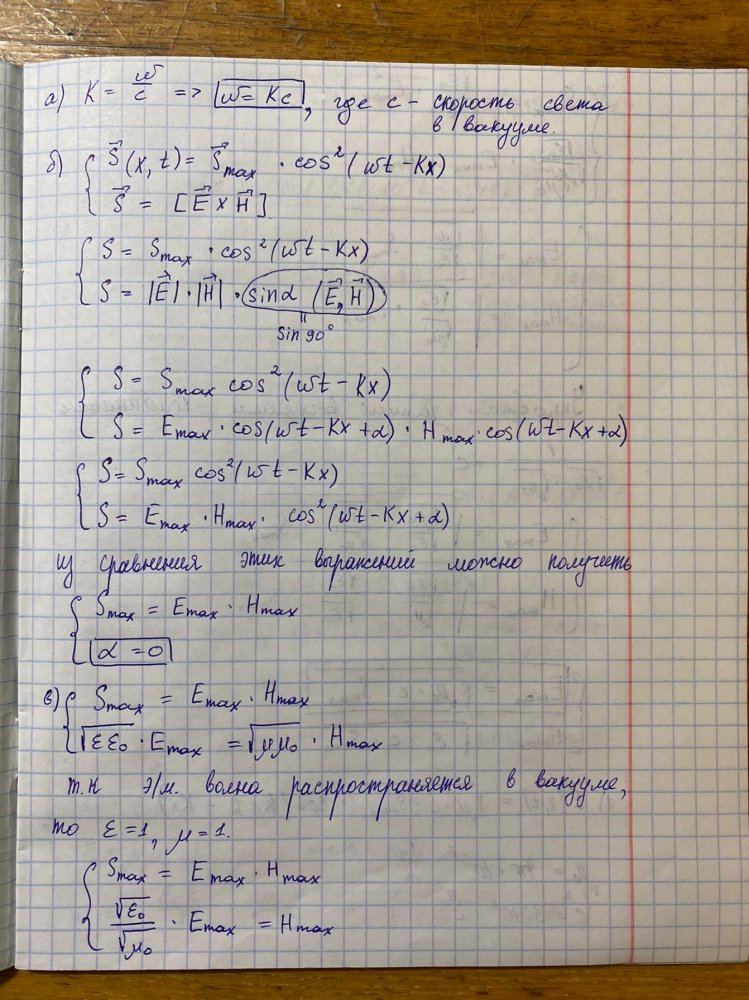 а) K = ω/c => ω = Kc, где c – скорость света
в вакууме.
б) { S⃗(x, t) = S⃗max · cos²(ωt – Kx)
S⃗ = [E⃗ × H⃗]
{ S = Smax · cos²(ωt – Kx)
S = |E⃗| · |H⃗| · sinα (E⃗, H⃗)
=
sin 90°
{ S = Smax cos²(ωt – Kx)
S = Emax · cos(ωt – Kx + α) · Hmax · cos(ωt – Kx + α)
{ S = Smax cos²(ωt – Kx)
S = Emax · Hmax · cos²(ωt – Kx + α)
из сравнения этих выражений можно получить
{ Smax = Emax · Hmax
α = 0
в) { Smax = Emax · Hmax
√εε₀ · Emax = √μμ₀ · Hmax
т.к э/м. волна распространяется в вакууме,
то ε = 1, μ = 1.
{ Smax = Emax · Hmax
√ε₀/√μ₀ · Emax = Hmax